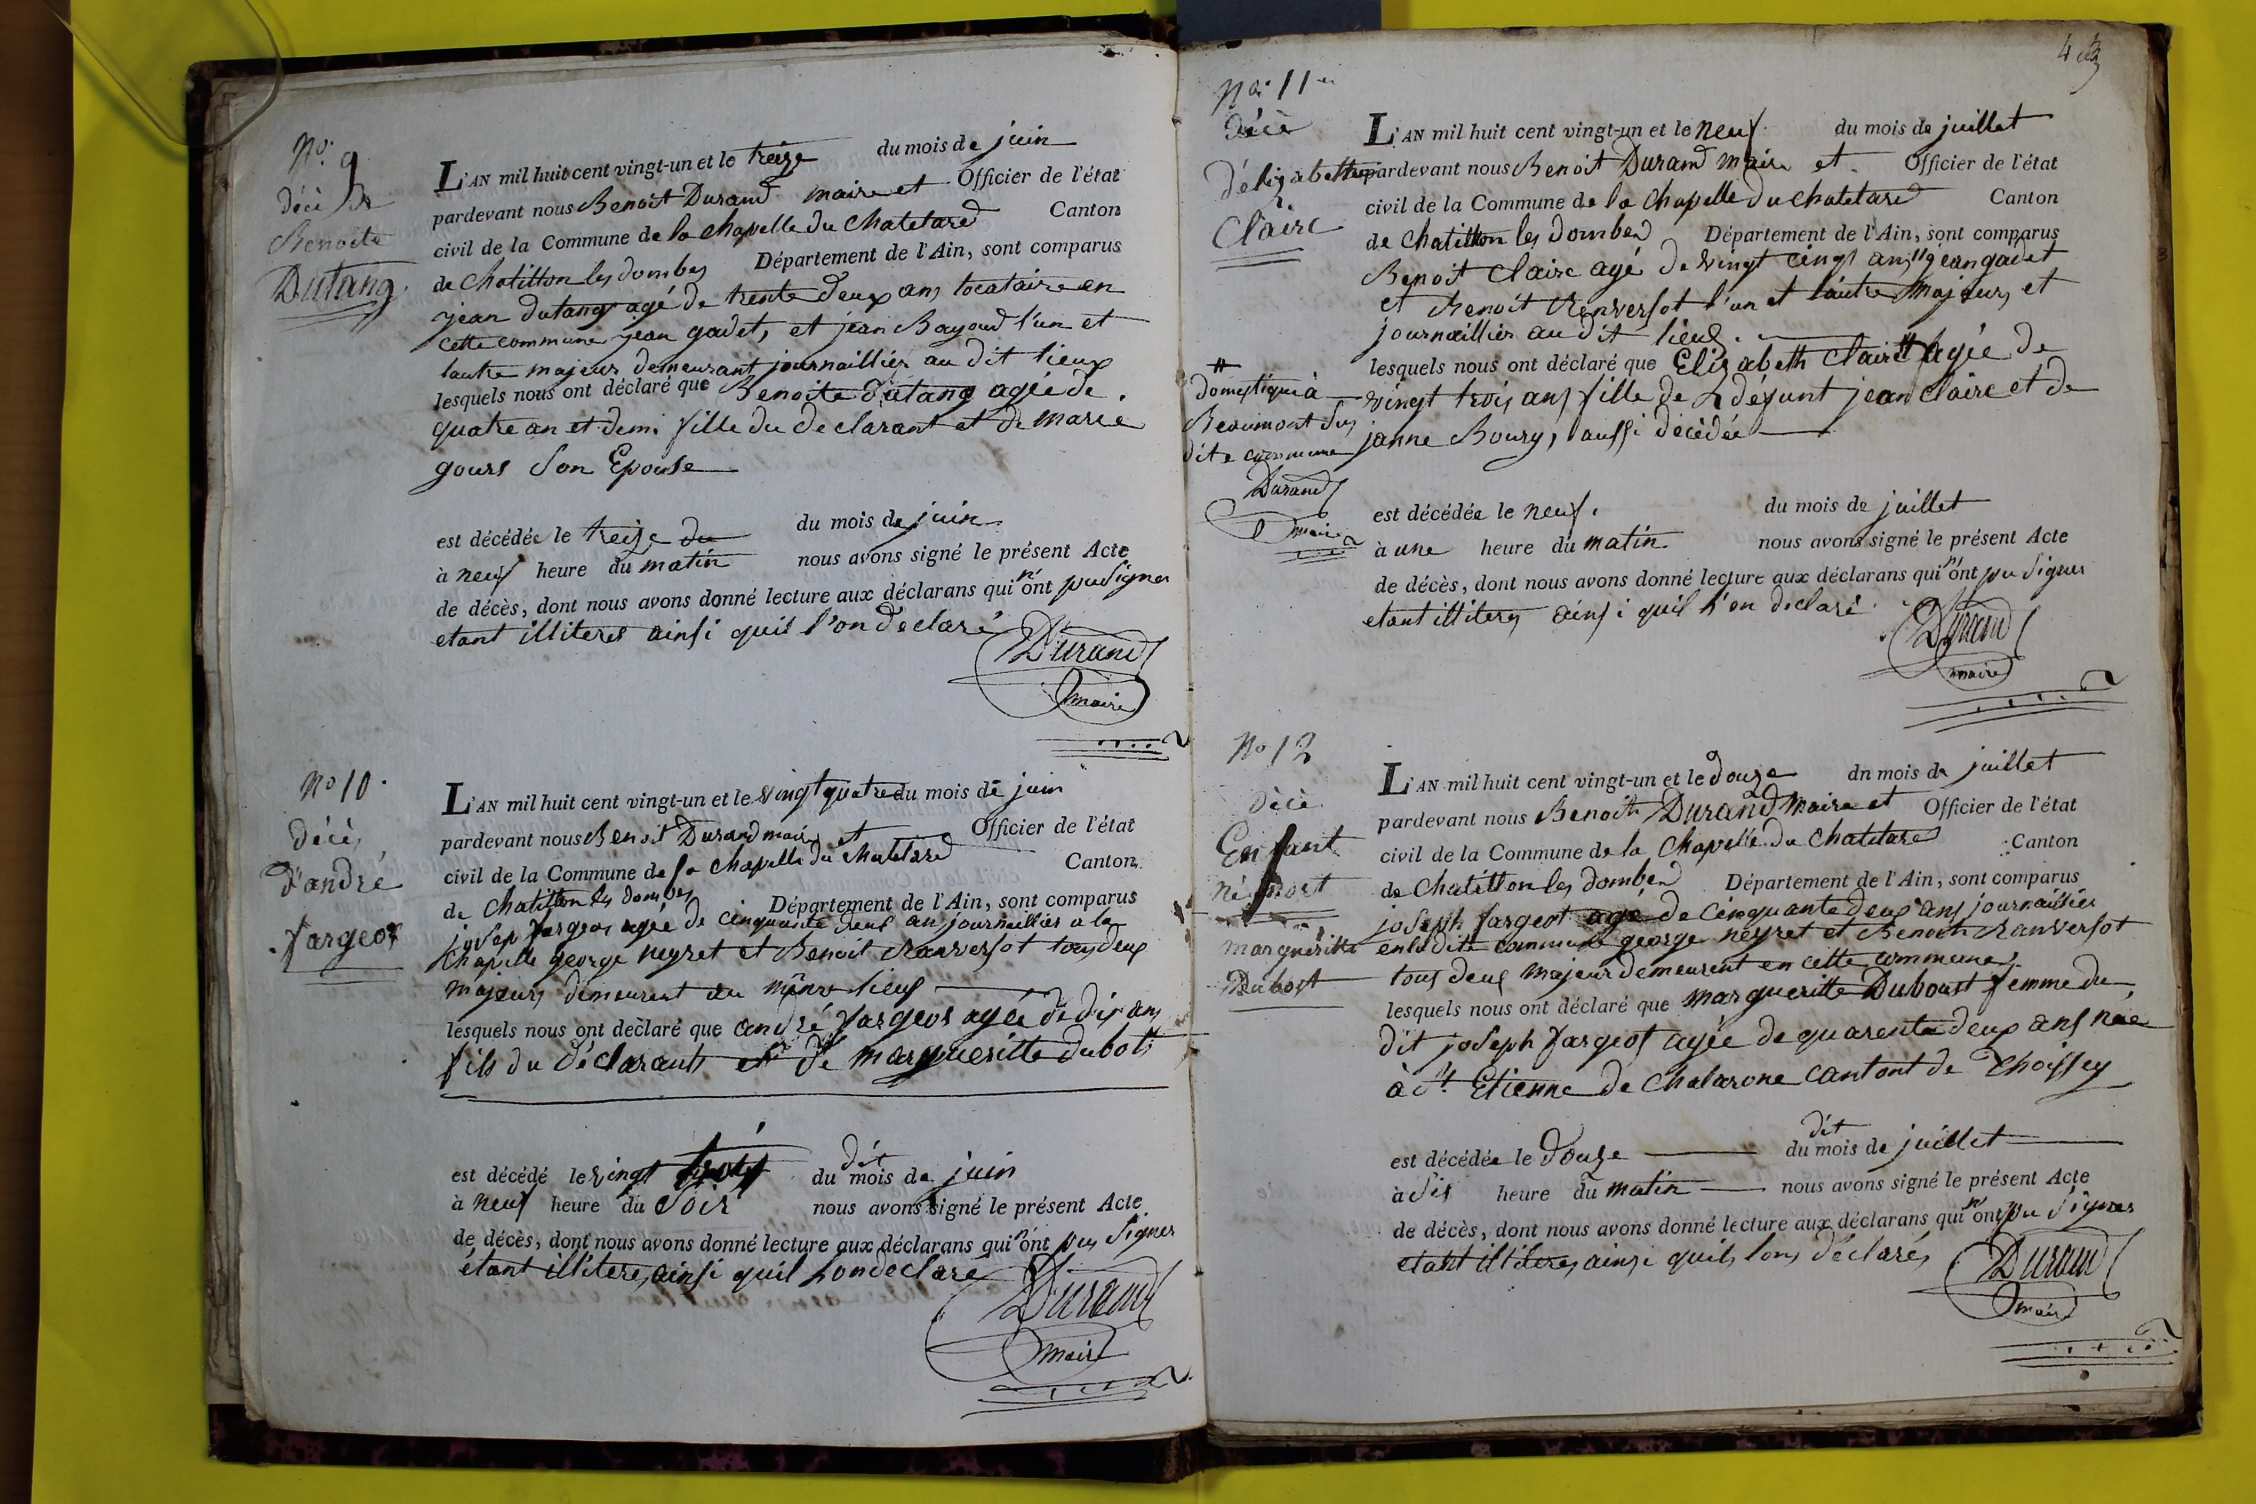 No. 9
décè de
Benoite
Dutang
L'AN mil huit cent vingt-un et le treize du mois de juin
pardevant nous Benoit Durand maire et Officier de l'état
civil de la Commune de la chapelle du Chatelard Canton
de Chatillon les dombes Département de l'Ain, sont comparus
jean dutang agé de trente deux ans locataire en
cette commune jean gadet, et jean Bayoud l'un et
lautre majeur demeurant journaillier au dit lieux
lesquels nous ont déclaré que Benoite dutang agée de
quatre an et demi fille du declarant et de marie
gours son Epouse
est décédée le treize du du mois de juin
à neuf heure du matin nous avons signé le présent Acte
de décès, dont nous avons donné lecture aux déclarans qui n'ont pu signer
etant illiteres ainsi quil l'on declaré
Durand
maire
No 10.
décè
d'andré
fargeot
L'AN mil huit cent vingt-un et le vingt quatre du mois de juin
pardevant nous Benoit Durand maire et Officier de l'état
civil de la Commune de la chapelle du chatelard Canton
de Chatillon les dombes Département de l'Ain, sont comparus
josep fargeos agée de cinquante deux an journaillier a la
chapelle george neyret et Benoit Ranversot tous deux
majeurs demeurent au même lieux
lesquels nous ont déclaré que andré fargeos agée de dix ans
fils du déclarant et de margueritte dubost
est décédé le vingt trois dit du mois de juin
à neuf heure du Soir nous avons signé le présent Acte
de décès, dont nous avons donné lecture aux déclarans qui n'ont pu Signer
étant illiteres, ainsi quil Londeclaré
Durand
maire
4
No. 11
décè
d'élizabette
Claire
L'AN mil huit cent vingt-un et le neuf du mois de juillet
pardevant nous Benoit Durand maire et Officier de l'état
civil de la Commune de la chapelle du chatelard Canton
de Chatillon les dombes Département de l'Ain, sont comparus
Benoit claire agé de vingt cinqt ans, jean gadet
et Benoit Renversot l'un et lautre majeurs et
journaillier au dit lieux.
lesquels nous ont déclaré que Elizabeth claire # agée de
vingt trois ans fille de défunt jean claire et de
janne Boury, aussi décédée
#
domestique à
Beaumont sus
dite commune
Durand
maire
est décédée le neuf. du mois de juillet
à une heure du matin nous avons signé le présent Acte
de décès, dont nous avons donné lecture aux déclarans qui n'ont pu Signer
etant illiteres ainsi quil l'on declaré
Durand
maire
No 12
décè
Enfant
né mort
margueritte
Dubost
L'AN mil huit cent vingt-un et le douze dn mois de juillet
pardevant nous Benoit Durand Maire et Officier de l'état
civil de la Commune de la Chapelle du Chatelard Canton
de Chatillon les dombes Département de l'Ain, sont comparus
joseph fargeot age de cinquante deux ans journaillier
en la dite commune george neyret et Benoit Ranversot
tous deux majeur demeurent en cette commune
lesquels nous ont déclaré que margueritte Duboust femme du
dit joseph fargeos agée de quarente deux ans née
à St. Etienne de Chalarone cantont de Thoissey
est décédée le douze dit du mois de juillet
à six heure du matin nous avons signé le présent Acte
de décès, dont nous avons donné lecture aux déclarans qui n'ont pu Signer
etant illiteres, ainsi quils lons déclarés
Durand
maire